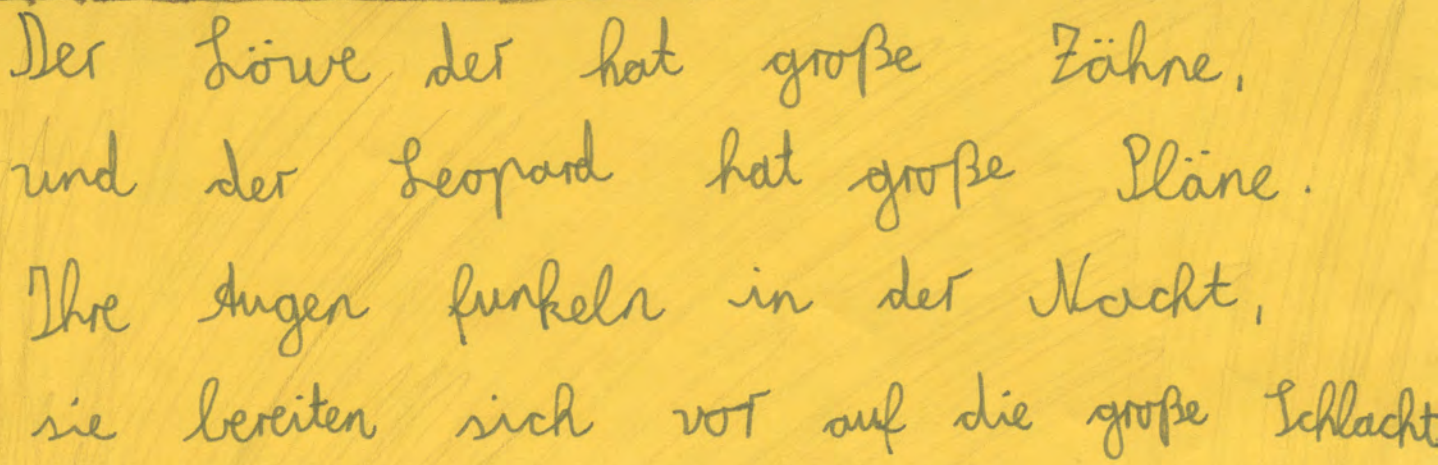 Der Löwe der hat große Zähne,
und der Leopard hat große Pläne.
Ihre Augen funkeln in der Nacht,
sie bereiten sich vor auf die große Schlacht